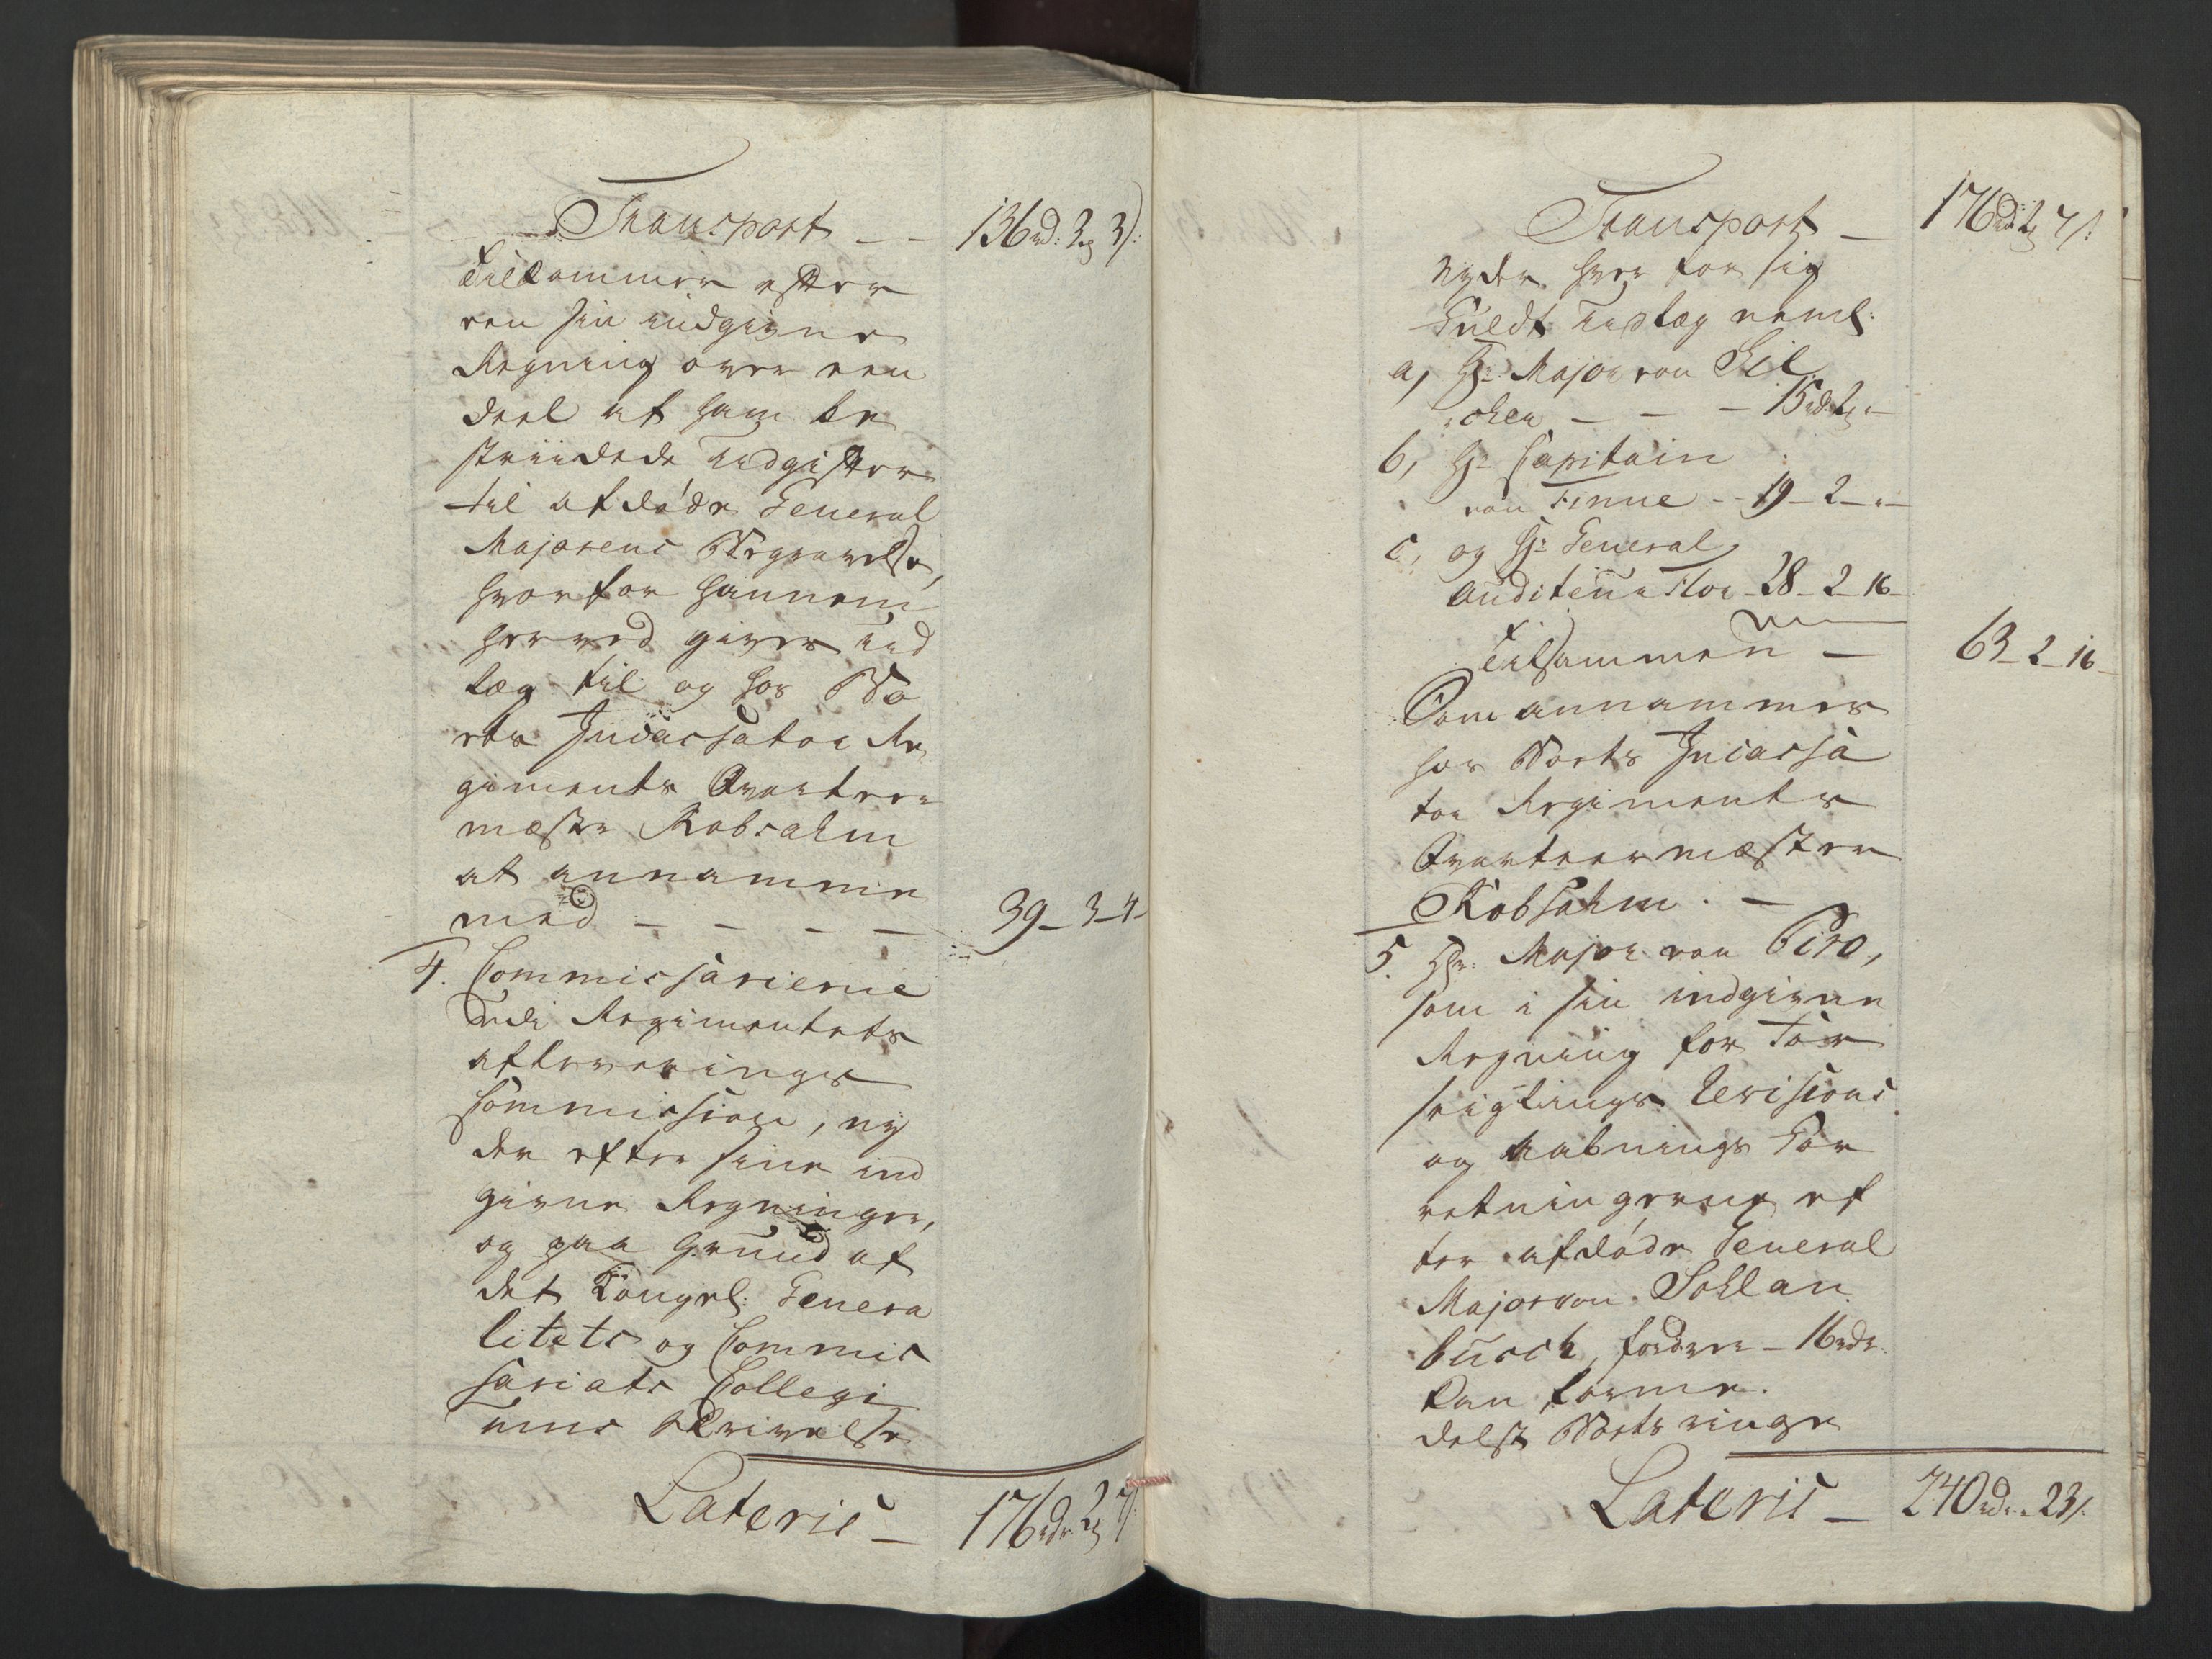 Transport — — 136rd: 3ƶ 3/:
Tilkommer efter
en sin indgivne
Regning over een
deel af ham be
striidede Udgifter
til afdøde General
Majorens Begravelse,
hvorfor hannem
herved gives Ud
læg til og hos Bo
ets Incassator Re
giments Qvarteer
mester Robsahm
at annamme
med — — — — 39 - 3 - 4 -
4. Commissarierne
udi Regimentets
afleverings
Commission, ny
der efter sine ind
givne Regninger,
og paa Grund af
det Kongel: Genera
litets og Commis
sariats Collegi
ums Skrivelse
Lateris — 176rdr 2ƶ 7/:
Transport — 176rd 2ƶ 7/:
nyder hver for sig
Fuldt Udlæg neml:
a, Hr: Major von Sil
chen — — — 15rd. 2ƶ "—
b, Hr: Capitain
von Finne - - 19 - 2 - " —
c, og Hr: General
Auditeur Flor - 28 - 2 - 16 -
Tilsammen — 63 - 2 - 16 -
Som annammes
hos Boets Incassa
tor Regiments
Qvarteermester
Robsahm. —
5. Hr: Major von Piro,
som i sin indgivne
Regning for For
seiglings Revisions
og aabnings For
retningerne ef
ter afdøde General
Major von Sohlan
busch, fordrer — 16rdr.
kan forme
delst Boets ringe
Lateris — 240rd. " 23/: